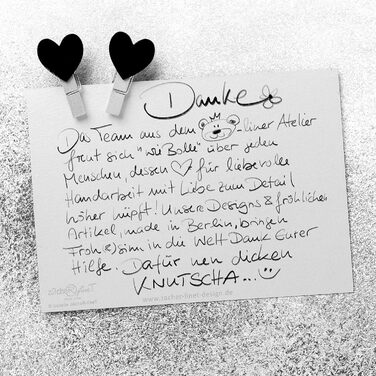 Danke
Das Team aus dem -liner Atelier
freut sich "wie Bolle" über jeden
Menschen, dessen ♡ für liebevolle
Handarbeit mit Liebe zum Detail
höher hüpft! Unsere Designs & fröhlichen
Artikel, made in Berlin, bringen
Froh&sinn in die Welt Dank Eurer
Hilfe. Dafür nen dicken
KNUTSCHA...
www.sachor-finet-design.de